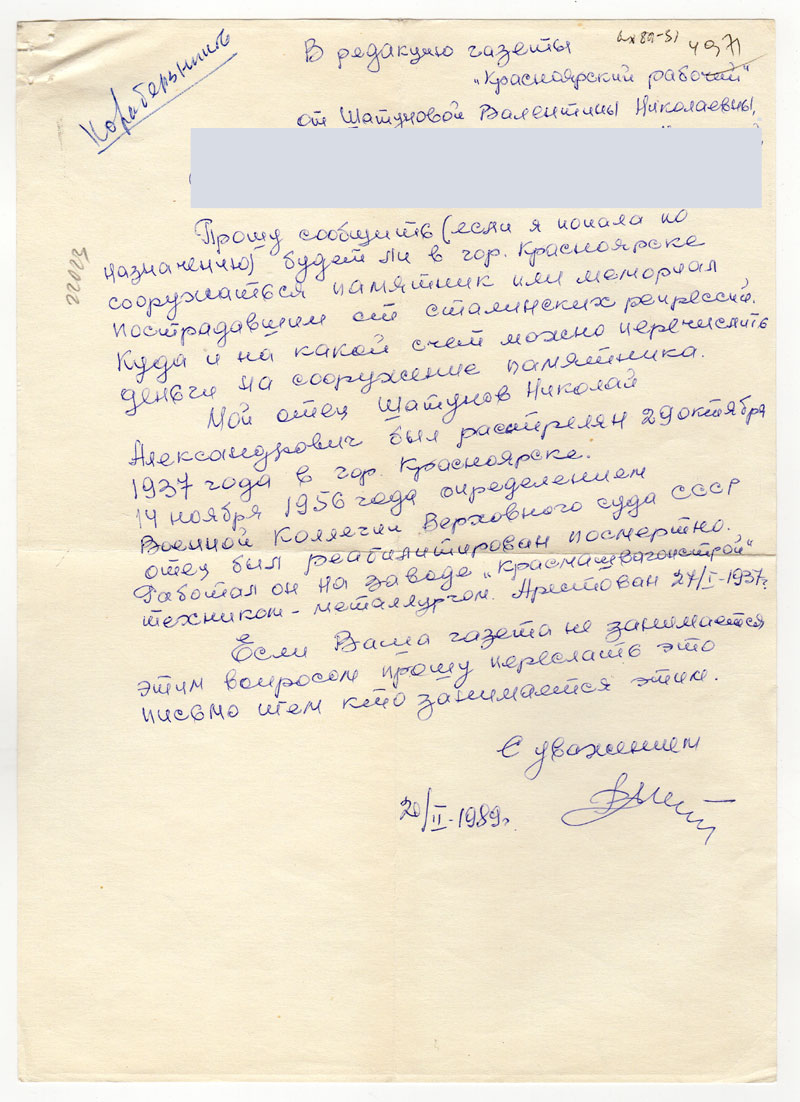 вх 89-51 4971
В редакцию газеты
„Красноярский рабочий"
от Шатуновой Валентины Николаевны,
22023
Прошу сообщить (если я попала по
назначению) будет ли в гор. Красноярске
сооружаться памятник или мемориал
пострадавшим от сталинских репрессий.
Куда и на какой счет можно перечислить
деньги на сооружение памятника.
Мой отец Шатунов Николай
Александрович был расстрелян 29 октября
1937 года в гор. Красноярске.
14 ноября 1956 года определением
Военной Коллегии Верховного суда СССР
отец был реабилитирован посмертно.
Работал он на заводе „Красмашвагонстрой"
техником-металлургом. Арестован 27/I-1937г.
Если Ваша газета не занимается
этим вопросом прошу переслать это
письмо тем кто занимается этим.
С уважением
20/II-1989г.